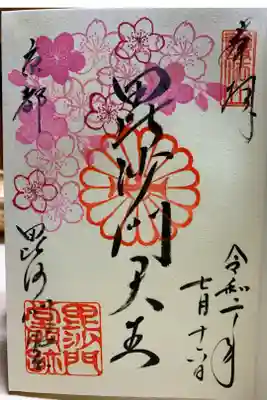 奉拝
令和二年
七月十六日
毘沙門天王
京都
毘沙門堂
毘沙門
堂門跡